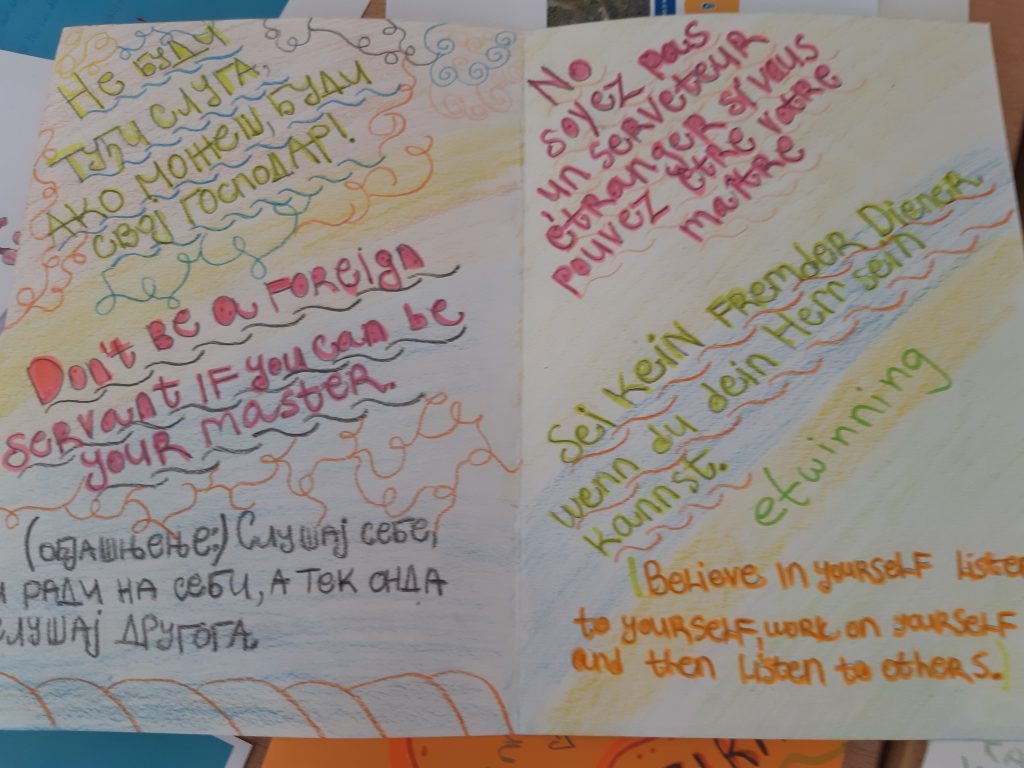 Не буди
туђи слуга,
ако можеш, буди
свој господар!
Don't be a foreign
servant if you can be
your master.
(објашњење:) Слушај себе,
и ради на себи, а тек онда
слушај другога
No
soyez pas
un serveteur
étranger si vaus
pouvez être votre
maître
Sei kein Fremder Diener
wenn du dein Herr sein
kannst.
etwinning
(Believe in yourself listen
to yourself, work on yourself
and then listen to others.)